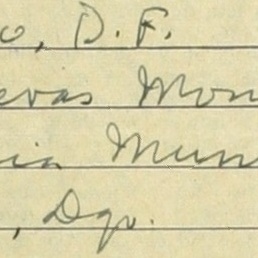 o, D.F.
evas Mon
ia Mun
, Dgo.